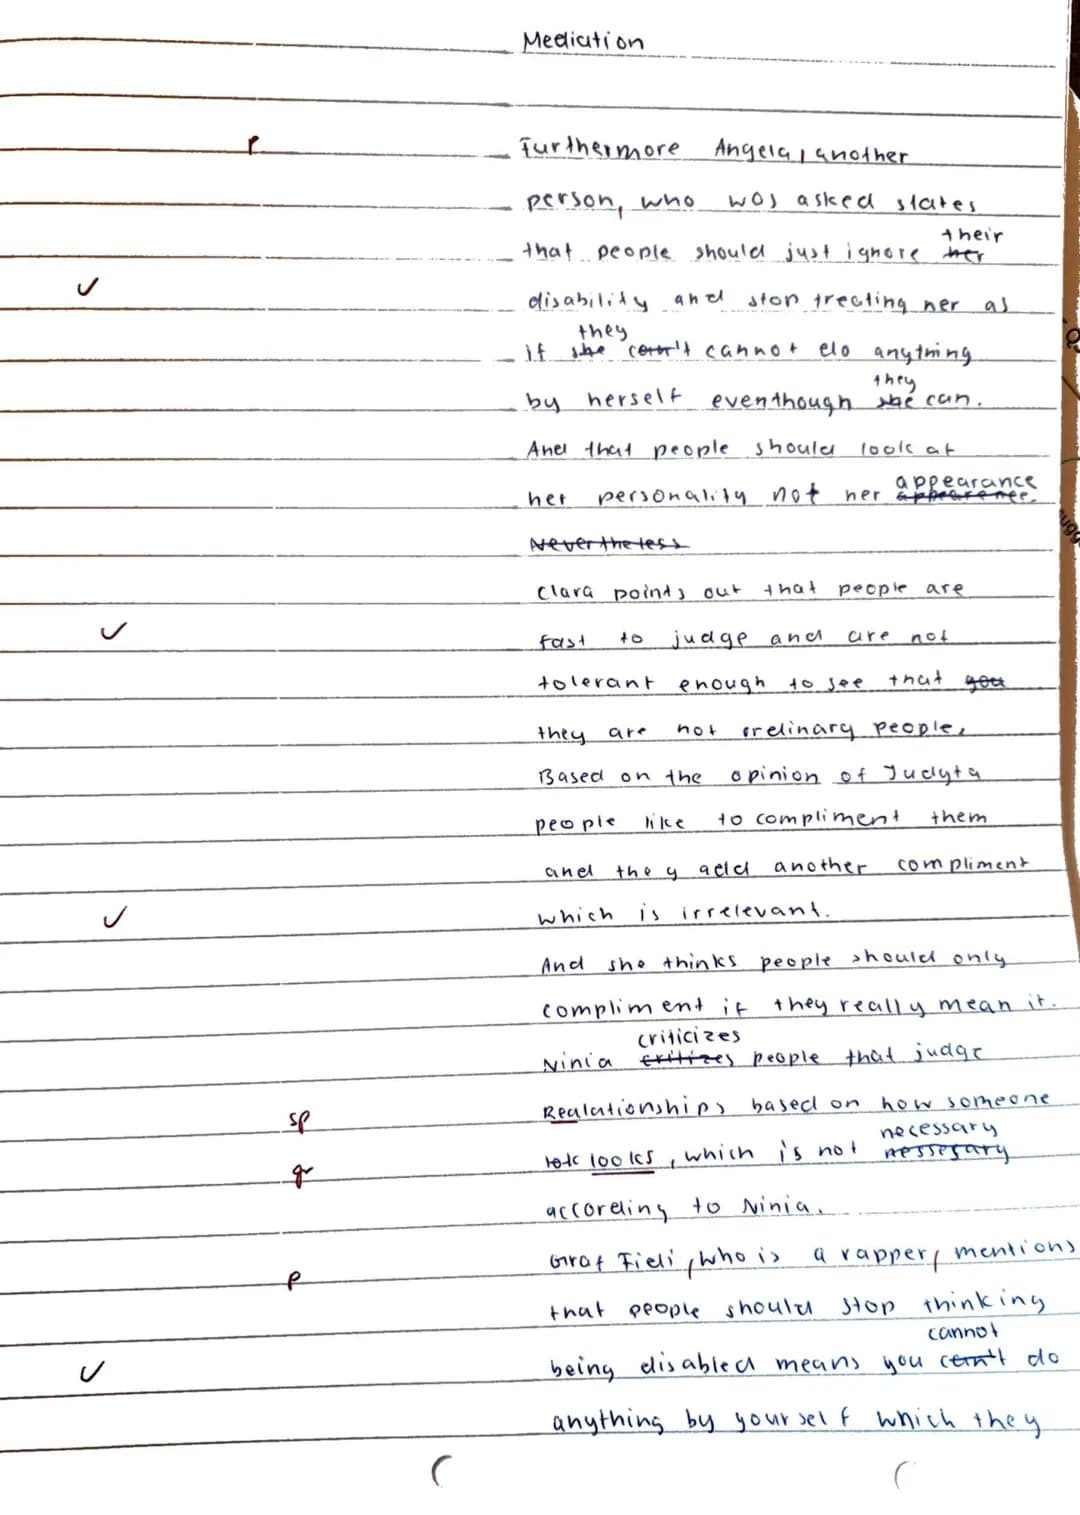 Mediation
r
Furthermore Angela, another
person, who was asked states
their
that people should just ignore her
✓
disability and stop treating her as
they
if she can't cannot do anything
they
by herself eventhough she can.
And that people should look at
appearance
her personality not her appearence.
Nevertheless
Clara points out that people are
✓
fast to judge and are not
tolerant enough to see that you
they are not ordinary people.
Based on the opinion of Judyta
people like to compliment them
and they add another compliment
✓
which is irrelevant.
And she thinks people should only
compliment if they really mean it.
criticizes
Ninia critizes people that judge
sp
Realationships based on how someone
necessary
gr
looks, which is not nessesary
according to Ninia.
Graf Fidi, who is a rapper, mentions
P
that people should stop thinking
cannot
✓
being disabled means you can't do
anything by yourself which they